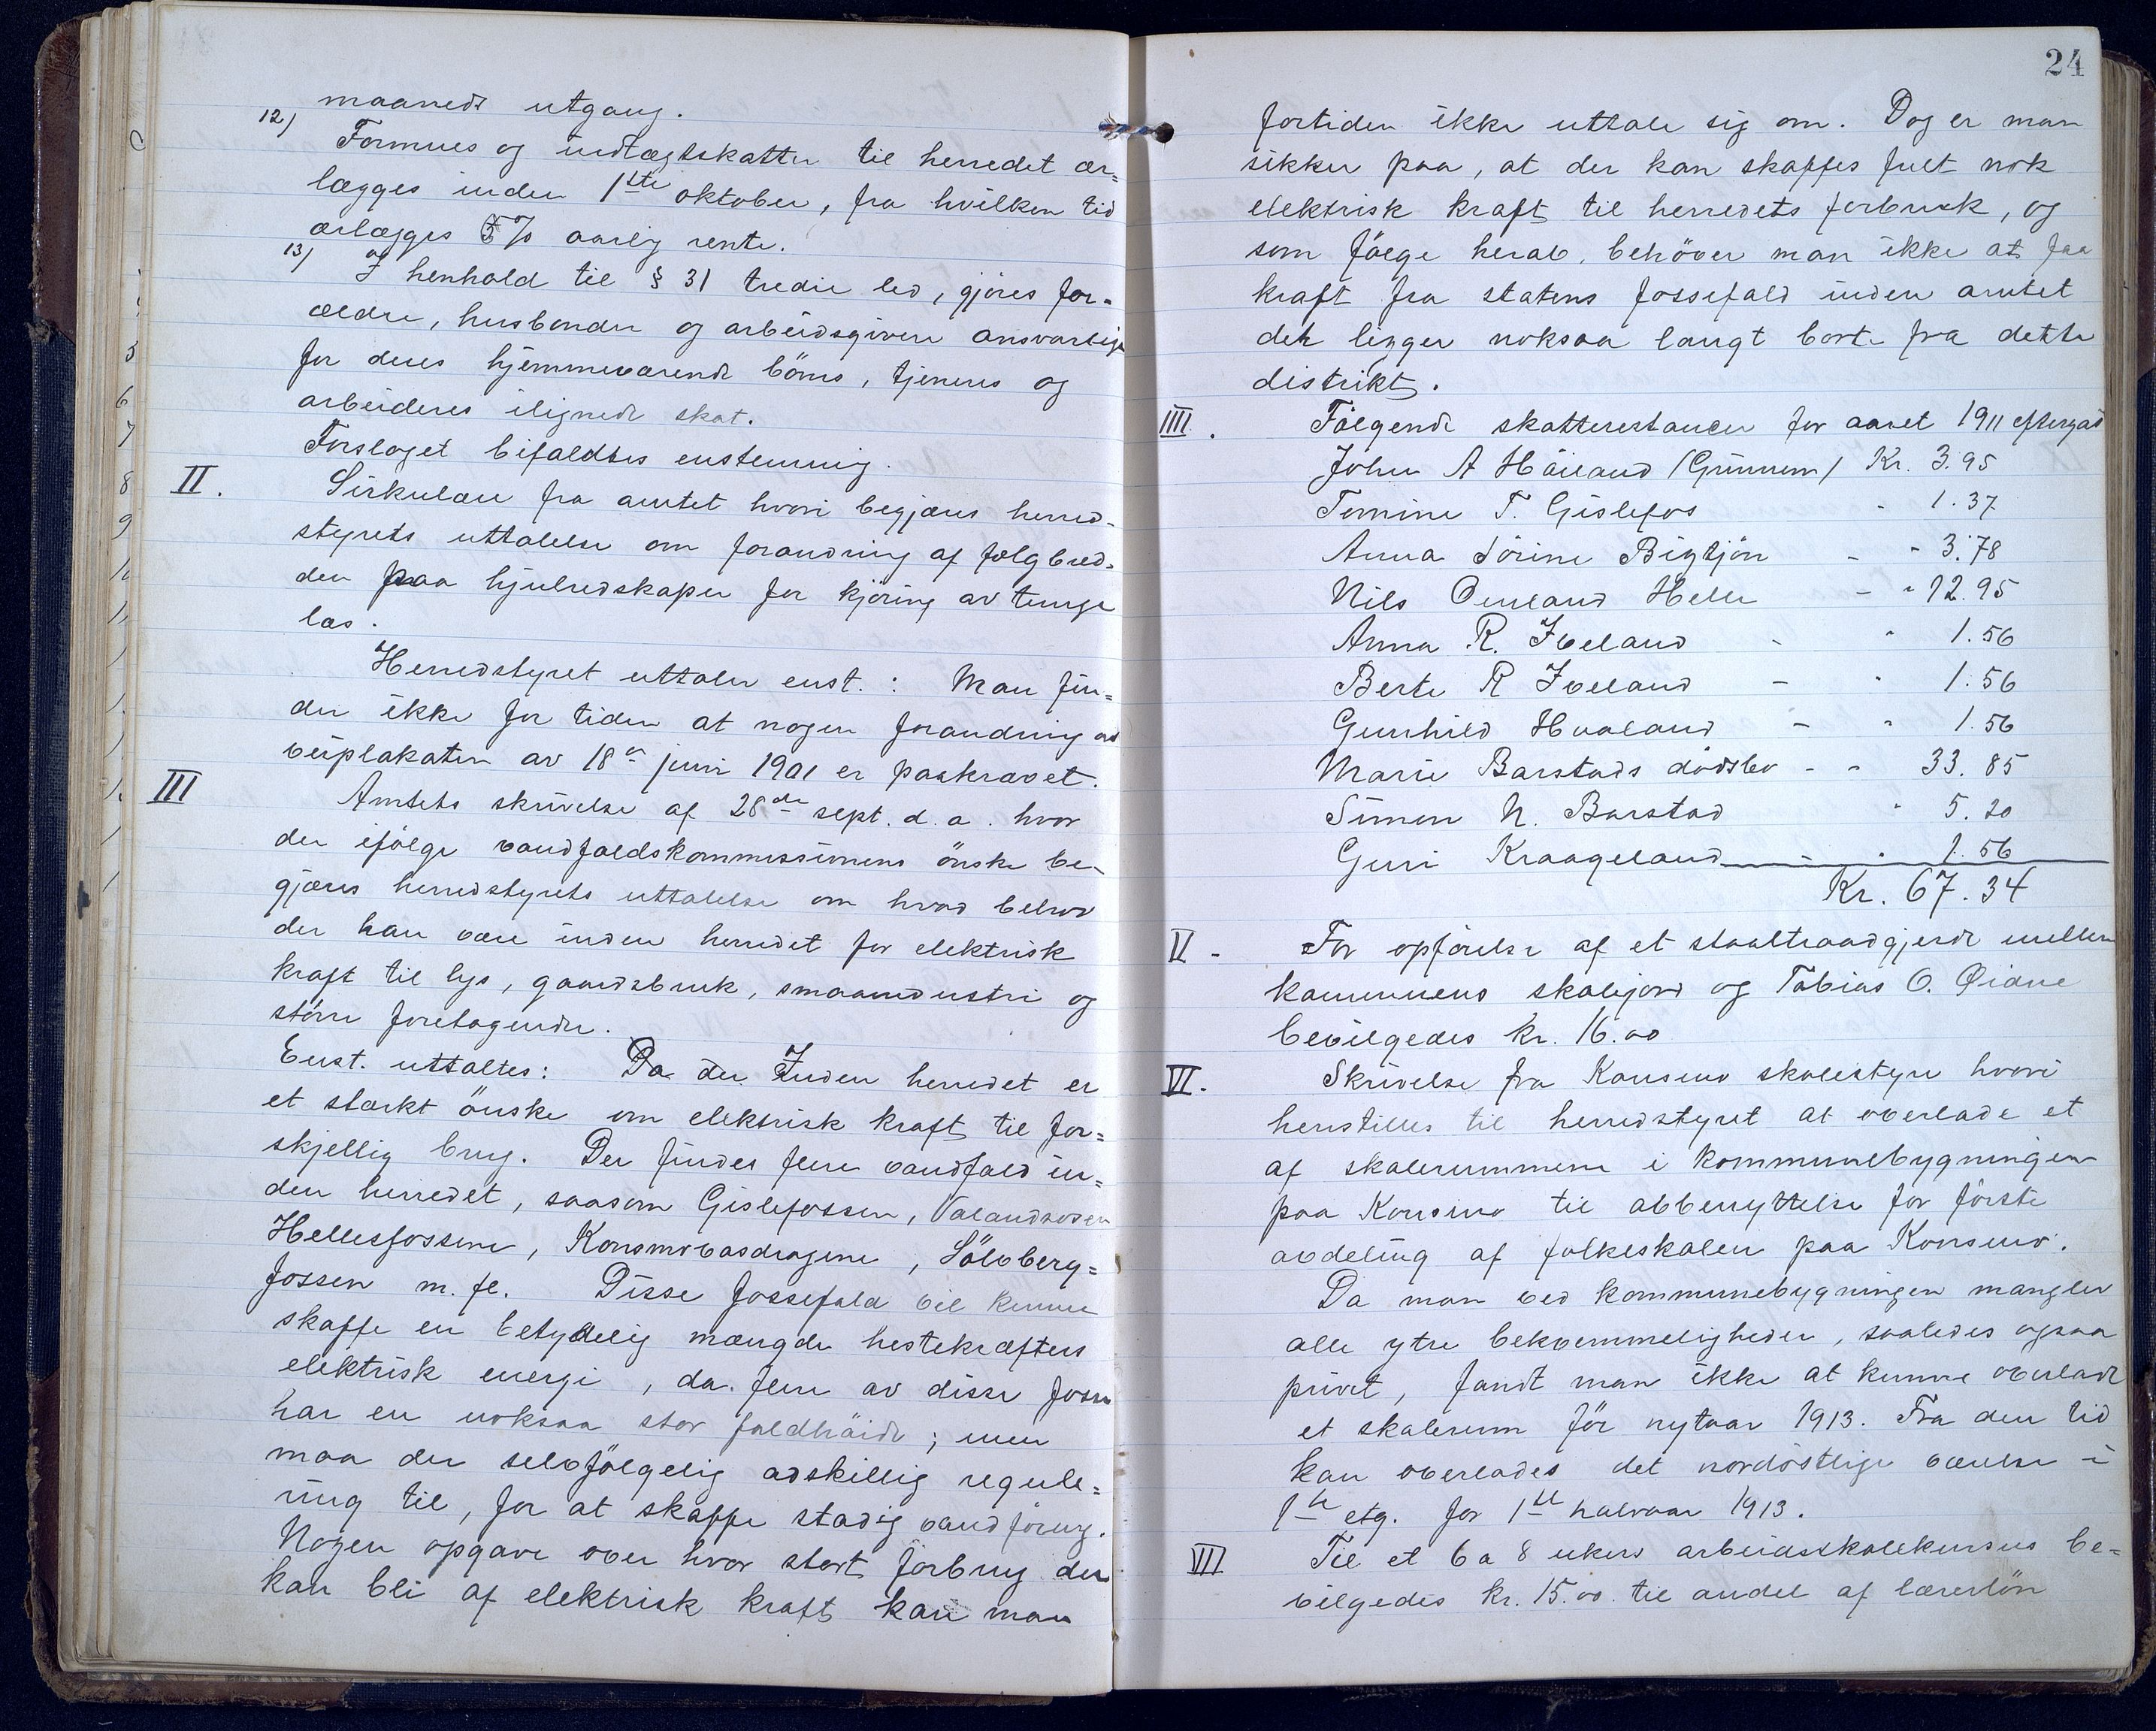 maaneds utgang.
12) Formues og indtægtskatter til herredet er=
lægges inden 1ste oktober, fra hvilken tid
erlægges 5% aarlig rente.
13) I henhold til § 31 tredie led, gjöres for=
ældre, husbonder og arbeidsgivere ansvarlige
for deres hjemmeværende börns, tjeneres og
arbeideres ilignede skat.
Forslaget bifaldtes enstemmig.
II. Sirkulære fra amtet hvori begjæres herred-
styrets uttalelse om forandring af fælgbred-
den paa hjulredskaper for kjöring av tunge
læs.
Herredstyret uttaler enst.: Man fin=
der ikke for tiden at nogen forandring av
veiplakaten av 18de juni 1901 er paakrævet.
III Amtets skrivelse af 28de sept. d. a. hvor
der ifölge vandfaldskommissionens önske be-
gjæres herredstyrets uttalelse om hvad behov
der kan være inden herredet for elektrisk
kraft til lys, gaardsbruk, smaaindustri og
större foretagender.
Enst. uttaltes: Da der Inden herredet er
et stærkt önske om elektrisk kraft til for=
skjellig brug. Der findes flere vandfald in=
den herredet, saasom Gislefossen, Valandsosen
Hellesfossene, Konsmovasdragene, Sölvberg=
fossen m. fl. Disse fossefald vil kunne
skaffe en betydelig mængde hestekræfters
elektrisk energi, da flere av disse fosse
har en noksaa stor faldhöide; men
maa der selvfölgelig adskillig regule=
ring til, for at skaffe stadig vandföring.
Nogen opgave over hvor stort forbrug der
kan bli af elektrisk kraft kan man
24
fortiden ikke uttale sig om. Dog er man
sikker paa, at der kan skaffes fult nok
elektrisk kraft til herredets forbruk, og
som fölge herav, behöver man ikke at faa
kraft fra statens fossefald inden amtet
det ligger noksaa langt borte fra dette
distrikt.
IIII. Fölgende skatterestancer for aaret 1911 eftergaes
John A Höiland (Grinnem) Kr. 3.95
Tomine T. Gislefos " 1.37
Anna Sörine Bigtjön - " 3.78
Nils Omland Helle - " 12.95
Anna R. Iveland - " 1.56
Berte R Iveland - " 1.56
Gunhild Haaland - " 1.56
Marie Barstads dödsbo - - 33.85
Simon N. Barstad " 5.20
Guri Kraageland - " 1.56
Kr. 67.34
V - For opförelse af et staaltraadgjerde mellem
kommunens skolejord og Tobias O. Øidne
bevilgedes kr. 16.00
VI. Skrivelse fra Konsmo skolestyre hvori
henstilles til herredstyret at overlade et
af skolerummene i kommunebygningen
paa Konsmo til abbenyttelse for förste
avdeling af folkeskolen paa Konsmo.
Da man ved kommunebygningen mangler
alle ytre bekvemmeligheder, saaledes ogsaa
privet, fandt man ikke at kunne overlade
et skolerum för nytaar 1913. Fra den tid
kan overlades det nordöstlige værelse i
1ste etg. for 1ste halvaar 1913.
VII Til et 6 a 8 ukers arbeidsskolekursus be=
vilgedes kr. 15.00 til andel af lærerlön